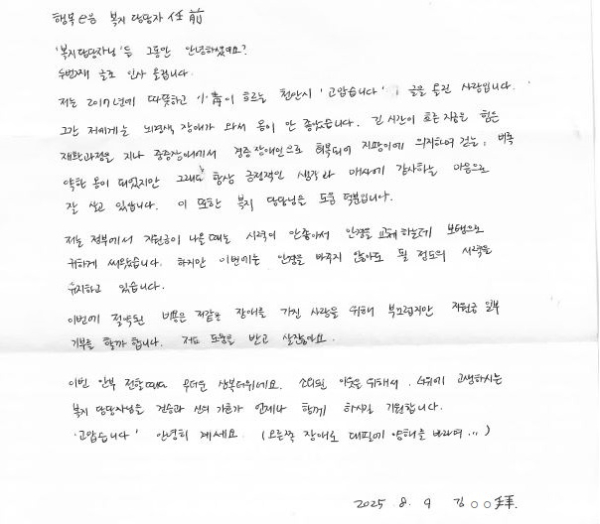 행복e음 복지 담당자 任 前
'복지담당자님'들 그동안 안녕하셨어요?
두번째 글로 인사 올립니다.
저는 2017년에 따뜻하고 小 이 흐르는 천안시 '고맙습니다', 글을 올린 사람입니다.
그간 저에게는 뇌경색 장애가 와서 몸이 안 좋았습니다. 긴 시간이 흐른 지금은 힘든
재활과정을 지나 중증장애에서 경증장애인으로 회복되어 지팡이에 의지하여 걷는, 비록
약한 몸이 되었지만 그래도 항상 긍정적인 생각과 매사에 감사하는 마음으로
잘 살고 있습니다. 이 또한 복지 담당님들 도움 덕분입니다.
저는 정부에서 지원금이 나올때는 시력이 안좋아서 안경을 교체 하는데 보탬으로
귀하게 써왔습니다. 하지만 이번에는 안경을 바꾸지 않아도 될 정도의 시력을
유지하고 있습니다.
이번에 절약된 비용은 저같은 장애를 가진 사람을 위해 부끄럽지만 지원금 일부
기부를 할까 합니다. 저도 도움을 받고 살잖아요.
이번 안부 전할때도 무더운 삼복더위에요. 소외된 이웃을 위해서 고생하시는
복지 담당자님들 건승과 신의 가호가 언제나 함께 하시길 기원합니다.
'고맙습니다' 안녕히 계세요. (오른쪽 장애로 대필에 양해를 바라며...)
2025. 8. 9 김○○拜.